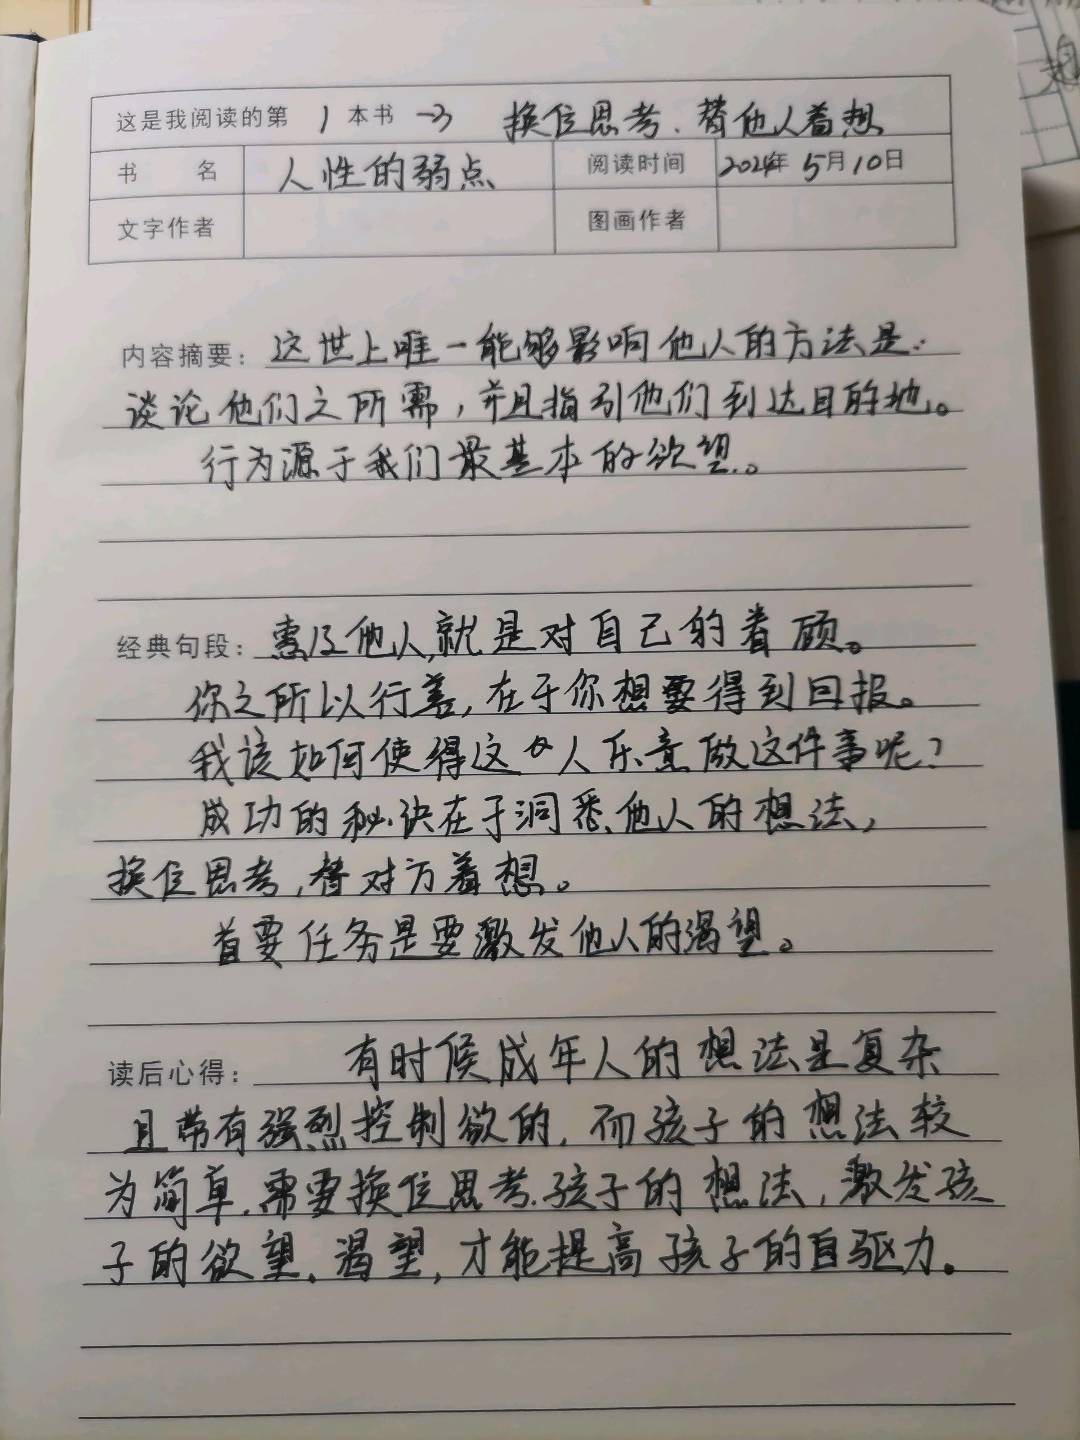 这是我阅读的第 1 本书 -3 换位思考、替他人着想
书 名 人性的弱点 阅读时间 2024年 5月10日
文字作者 图画作者
内容摘要：这世上唯一能够影响他人的方法是：
谈论他们之所需，并且指引他们到达目的地。
行为源于我们最基本的欲望。
经典句段：惠及他人，就是对自己的眷顾。
你之所以行善，在于你想要得到回报。
我该如何使得这个人乐意做这件事呢？
成功的秘诀在于洞悉他人的想法，
换位思考，替对方着想。
首要任务是要激发他人的渴望。
读后心得：有时候成年人的想法是复杂
且带有强烈控制欲的，而孩子的想法较
为简单，需要换位思考孩子的想法，激发孩
子的欲望、渴望，才能提高孩子的自驱力。